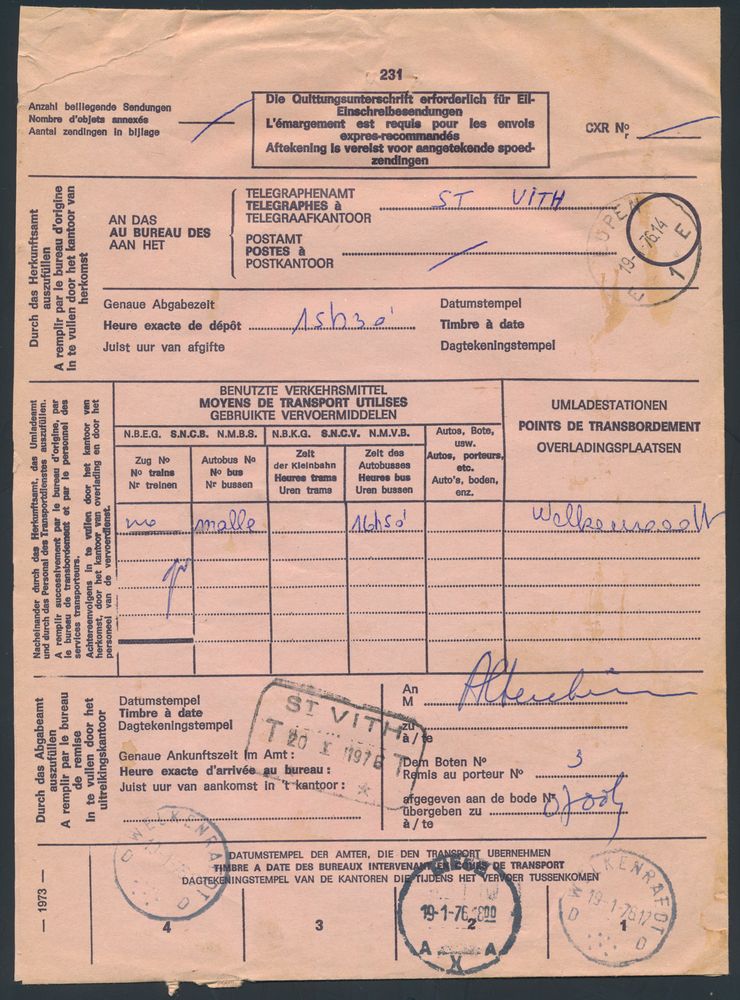 231
Anzahl beiliegende Sendungen
Nombre d'objets annexés
Aantal zendingen in bijlage
Die Quittungsunterschrift erforderlich für Eil-
Einschreibesendungen
L'émargement est requis pour les envois
expres-recommandés
Aftekening is vereist voor aangetekende spoed-
zendingen
CXR No
r
Durch das Herkunftsamt
auszufüllen
A remplir par le bureau d'origine
In te vullen door het kantoor van
herkomst
AN DAS
AU BUREAU DES
AAN HET
TELEGRAPHENAMT
TELEGRAPHES à
TELEGRAAFKANTOOR
ST VITH
POSTAMT
POSTES à
POSTKANTOOR
EUPEN
19-1-76.14
E 1 E
Genaue Abgabezeit
Heure exacte de dépôt 15h30
Juist uur van afgifte
Datumstempel
Timbre à date
Dagtekeningstempel
Nacheinander durch das Herkunftsamt, das Umladeamt
und durch das Personal des Transportdienstes auszufüllen.
A remplir successivement par le bureau d'origine, par
le bureau de transbordement et par le personnel des
services transporteurs.
Achtereenvolgens in te vullen door het kantoor van
herkomst, door het kantoor van overlading en door het
personeel van de vervoerdienst.
BENUTZTE VERKEHRSMITTEL
MOYENS DE TRANSPORT UTILISES
GEBRUIKTE VERVOERMIDDELEN
N.B.E.G. S.N.C.B. N.M.B.S.
N.B.K.G. S.N.C.V. N.M.V.B.
Autos, Bote,
usw.
Autos, porteurs,
etc.
Auto's, boden,
enz.
UMLADESTATIONEN
POINTS DE TRANSBORDEMENT
OVERLADINGSPLAATSEN
Zug No
No trains
Nr treinen
Autobus No
No bus
Nr bussen
Zeit
der Kleinbahn
Heures trams
Uren trams
Zeit des
Autobusses
Heures bus
Uren bussen
malle
16h50
Welkenraedt
Durch das Abgabeamt
auszufüllen
A remplir par le bureau
de remise
In te vullen door het
uitreikingskantoor
Datumstempel
Timbre à date
Dagtekeningstempel
ST VITH
T 20 I 1976 T
Genaue Ankunftszeit im Amt:
Heure exacte d'arrivée au bureau:
Juist uur van aankomst in 't kantoor:
An
M
zu
à / te
Dem Boten No
Remis au porteur No 3
afgegeven aan de bode Nr
übergeben zu
à / te
— 1973 —
DATUMSTEMPEL DER AMTER, DIE DEN TRANSPORT UBERNEHMEN
TIMBRE A DATE DES BUREAUX INTERVENANT EN COURS DE TRANSPORT
DAGTEKENINGSTEMPEL VAN DE KANTOREN DIE TIJDENS HET VERVOER TUSSENKOMEN
WELKENRAEDT
D D
19-1-76.1800
A X A
WELKENRAEDT
19-1-76.17
D D
4
3
2
1